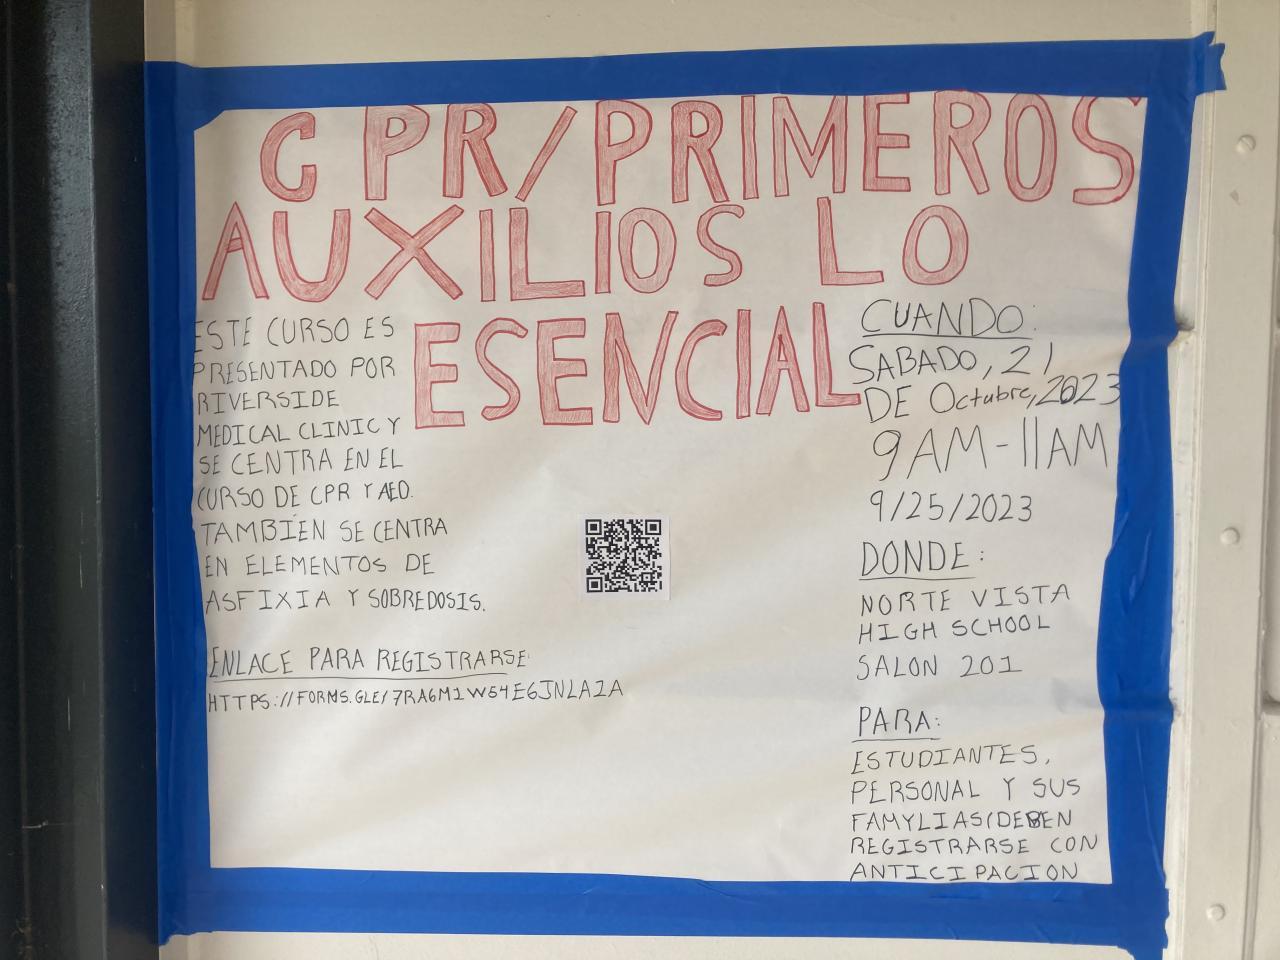 CPR/PRIMEROS
AUXILIOS LO
ESENCIAL
ESTE CURSO ES
PRESENTADO POR
RIVERSIDE
MEDICAL CLINIC Y
SE CENTRA EN EL
CURSO DE CPR Y AED.
TAMBIEN SE CENTRA
EN ELEMENTOS DE
ASFIXIA Y SOBREDOSIS.
ENLACE PARA REGISTRARSE:
HTTPS://FORMS.GLE/7RA6M1W54E6JNLA2A
CUANDO:
SABADO, 21
DE Octubre, 2023
9AM-11AM
9/25/2023
DONDE:
NORTE VISTA
HIGH SCHOOL
SALON 201
PARA:
ESTUDIANTES,
PERSONAL Y SUS
FAMYLIAS(DEBEN
REGISTRARSE CON
ANTICIPACION